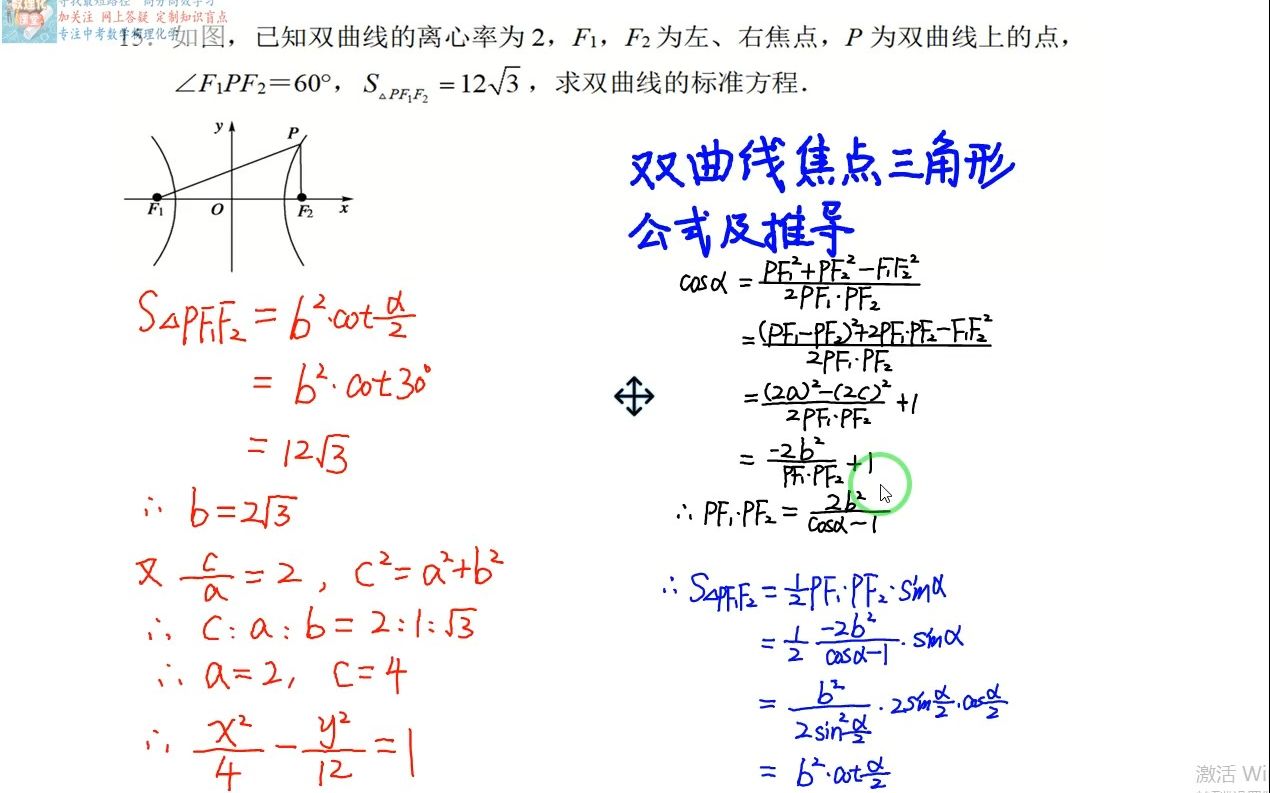 寻找最短路径 高分高效学习
加关注 网上答疑 定制知识盲点
专注中考数学物理化学
15. 如图，已知双曲线的离心率为 2，F₁，F₂ 为左、右焦点，P 为双曲线上的点，
∠F₁PF₂＝60°，S△PF₁F₂ = 12√3，求双曲线的标准方程．
y P
F₁ O F₂ x
S△PF₁F₂ = b²·cot α/2
= b²·cot30°
= 12√3
∴ b = 2√3
又 c/a = 2, c² = a²+b²
∴ c : a : b = 2 : 1 : √3
∴ a = 2, c = 4
∴ x²/4 − y²/12 = 1
双曲线焦点三角形
公式及推导
cosα = (PF₁²+PF₂²−F₁F₂²)/(2PF₁·PF₂)
= ((PF₁−PF₂)²+2PF₁·PF₂−F₁F₂²)/(2PF₁·PF₂)
= ((2a)²−(2c)²)/(2PF₁·PF₂) +1
= −2b²/(PF₁·PF₂) +1
∴ PF₁·PF₂ = 2b²/(cosα−1)
∴ S△PF₁F₂ = 1/2 PF₁·PF₂·sinα
= 1/2 −2b²/(cosα−1)·sinα
= b²/(2sin²α/2)·2sinα/2·cosα/2
= b²·cot α/2
激活 Wi